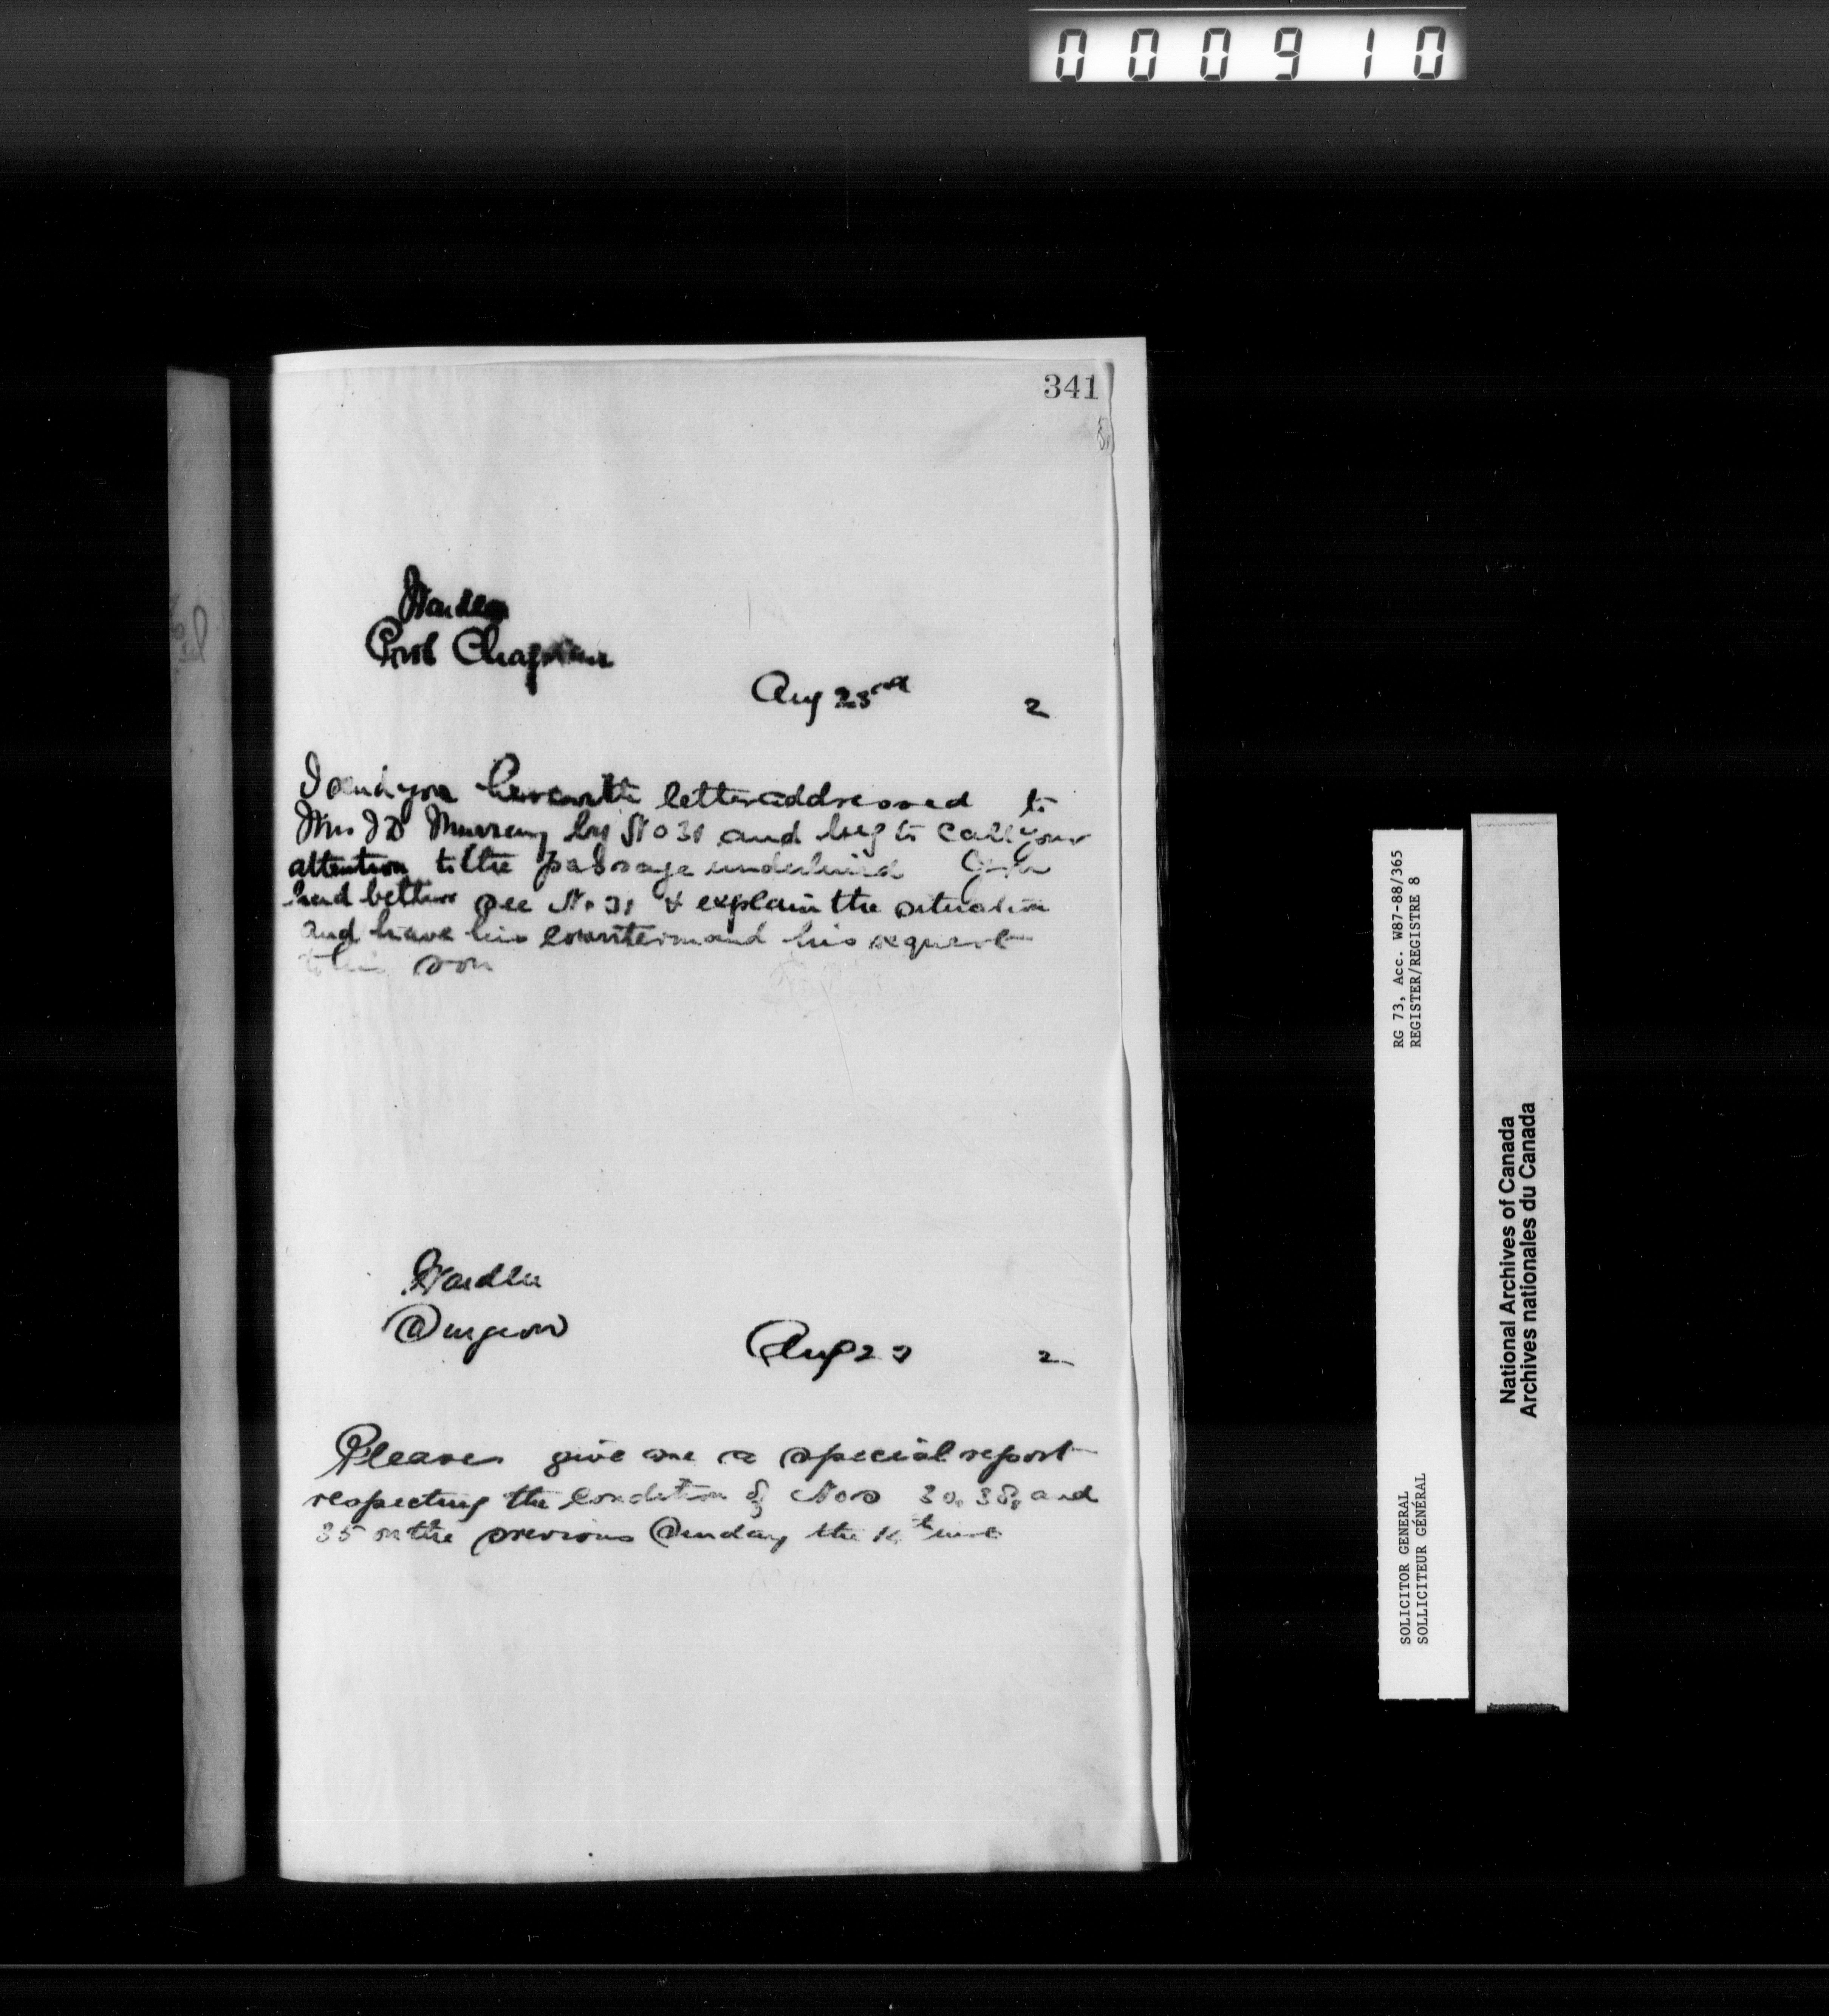 000910
341
Warden
Prot Chaplain
Aug 23rd 2
I send you herewith letter addressed to
Mrs J D Murray by No 31 and beg to call your
attention to the passage underlined
had better see No 31 & explain the situation
and have him countermand his request
to his son
Warden
Surgeon
Aug 23 2
Please give me a special report
respecting the condition of Nos 30, 38, and
35 on the previous Sunday the inst
RG 73, Acc. W87-88/365
REGISTER/REGISTRE 8
SOLICITOR GENERAL
SOLLICITEUR GÉNÉRAL
National Archives of Canada
Archives nationales du Canada